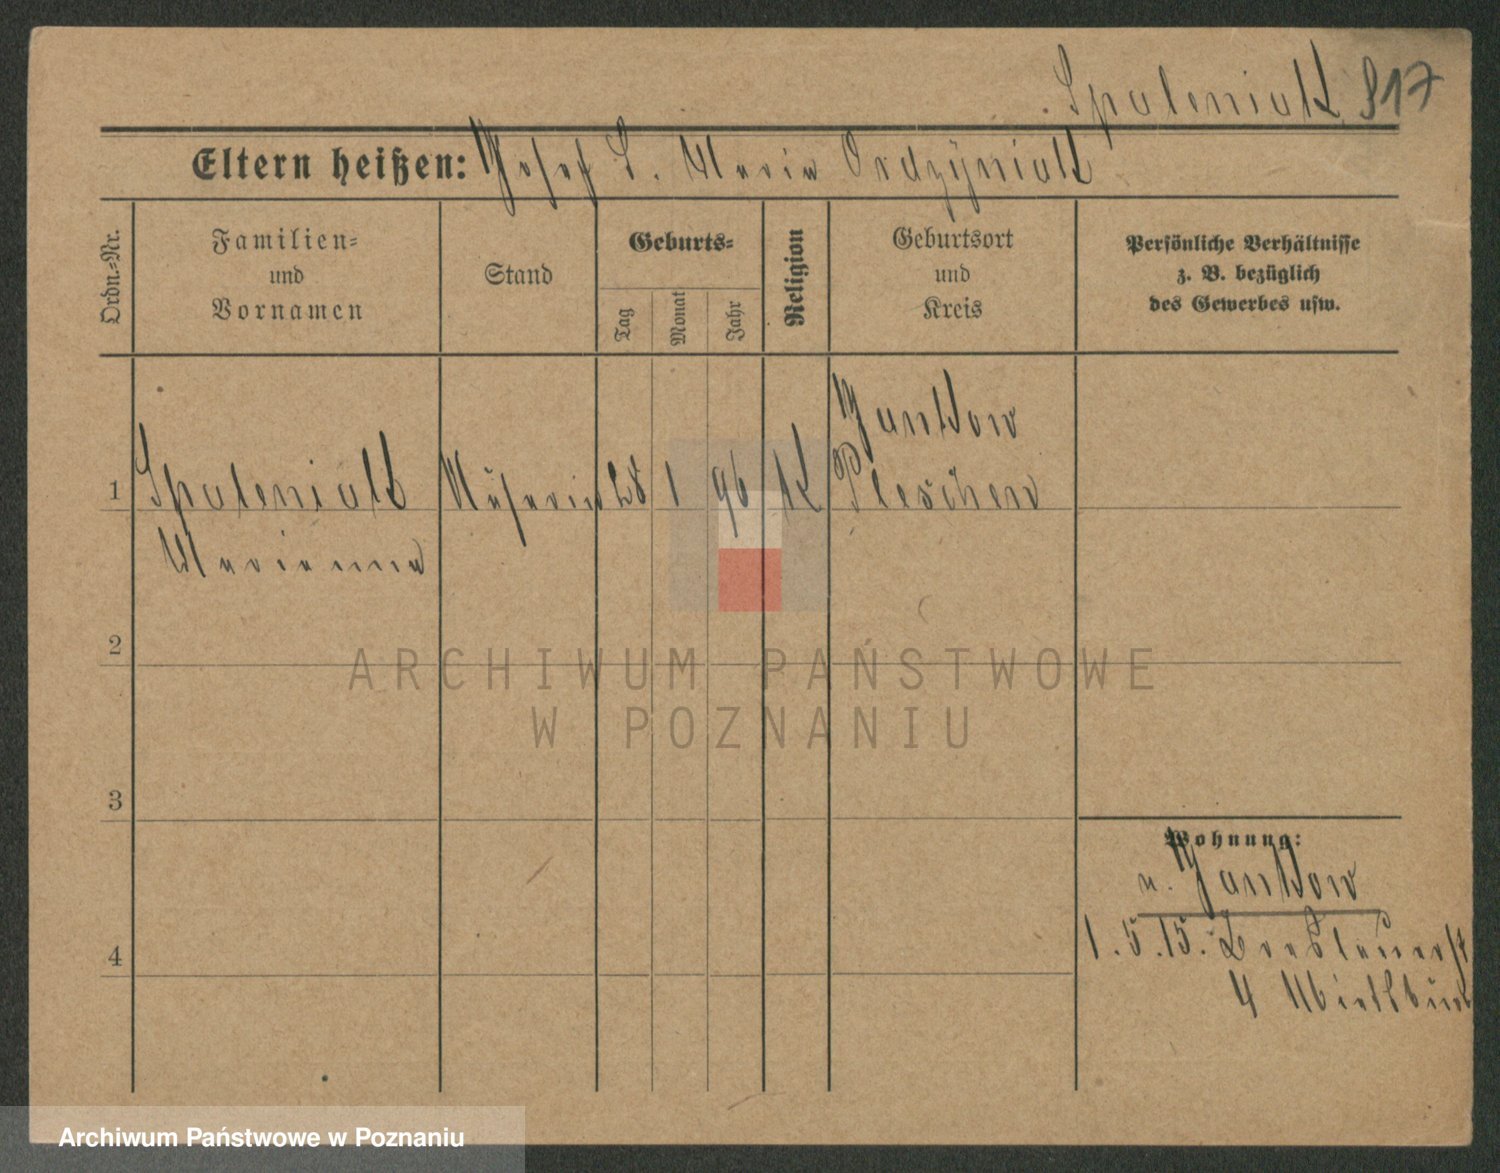 Spaleniak 817
Eltern heißen: Josef S. Maria Ordzyniak
Ordn.-Nr.
Familien-
und
Vornamen
Stand
Geburts-
Tag
Monat
Jahr
Religion
Geburtsort
und
Kreis
Persönliche Verhältnisse
z. B. bezüglich
des Gewerbes usw.
Jankow
1 Spaleniak Näherin 28 1 96 K Pleschen
Marianna
2
3
4
Wohnung:
n. Jankow
1.5.15.
4
ARCHIWUM PAŃSTWOWE
W POZNANIU
Archiwum Państwowe w Poznaniu